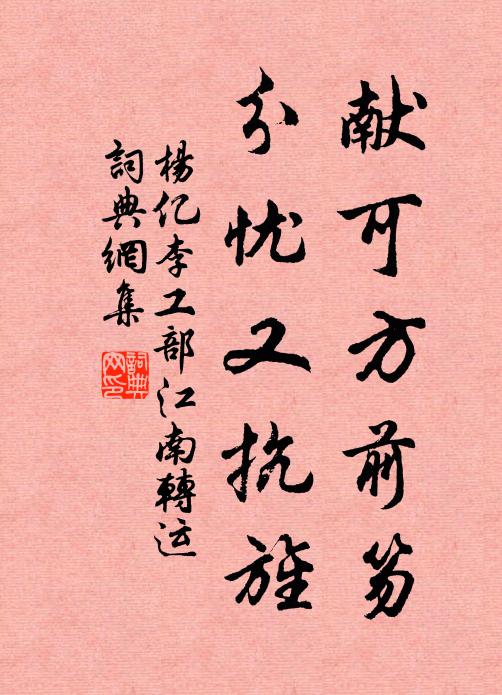 献可方前笏
分忧又抗旌
楊亿李工部江南轉运
詞典網集
詞典网印